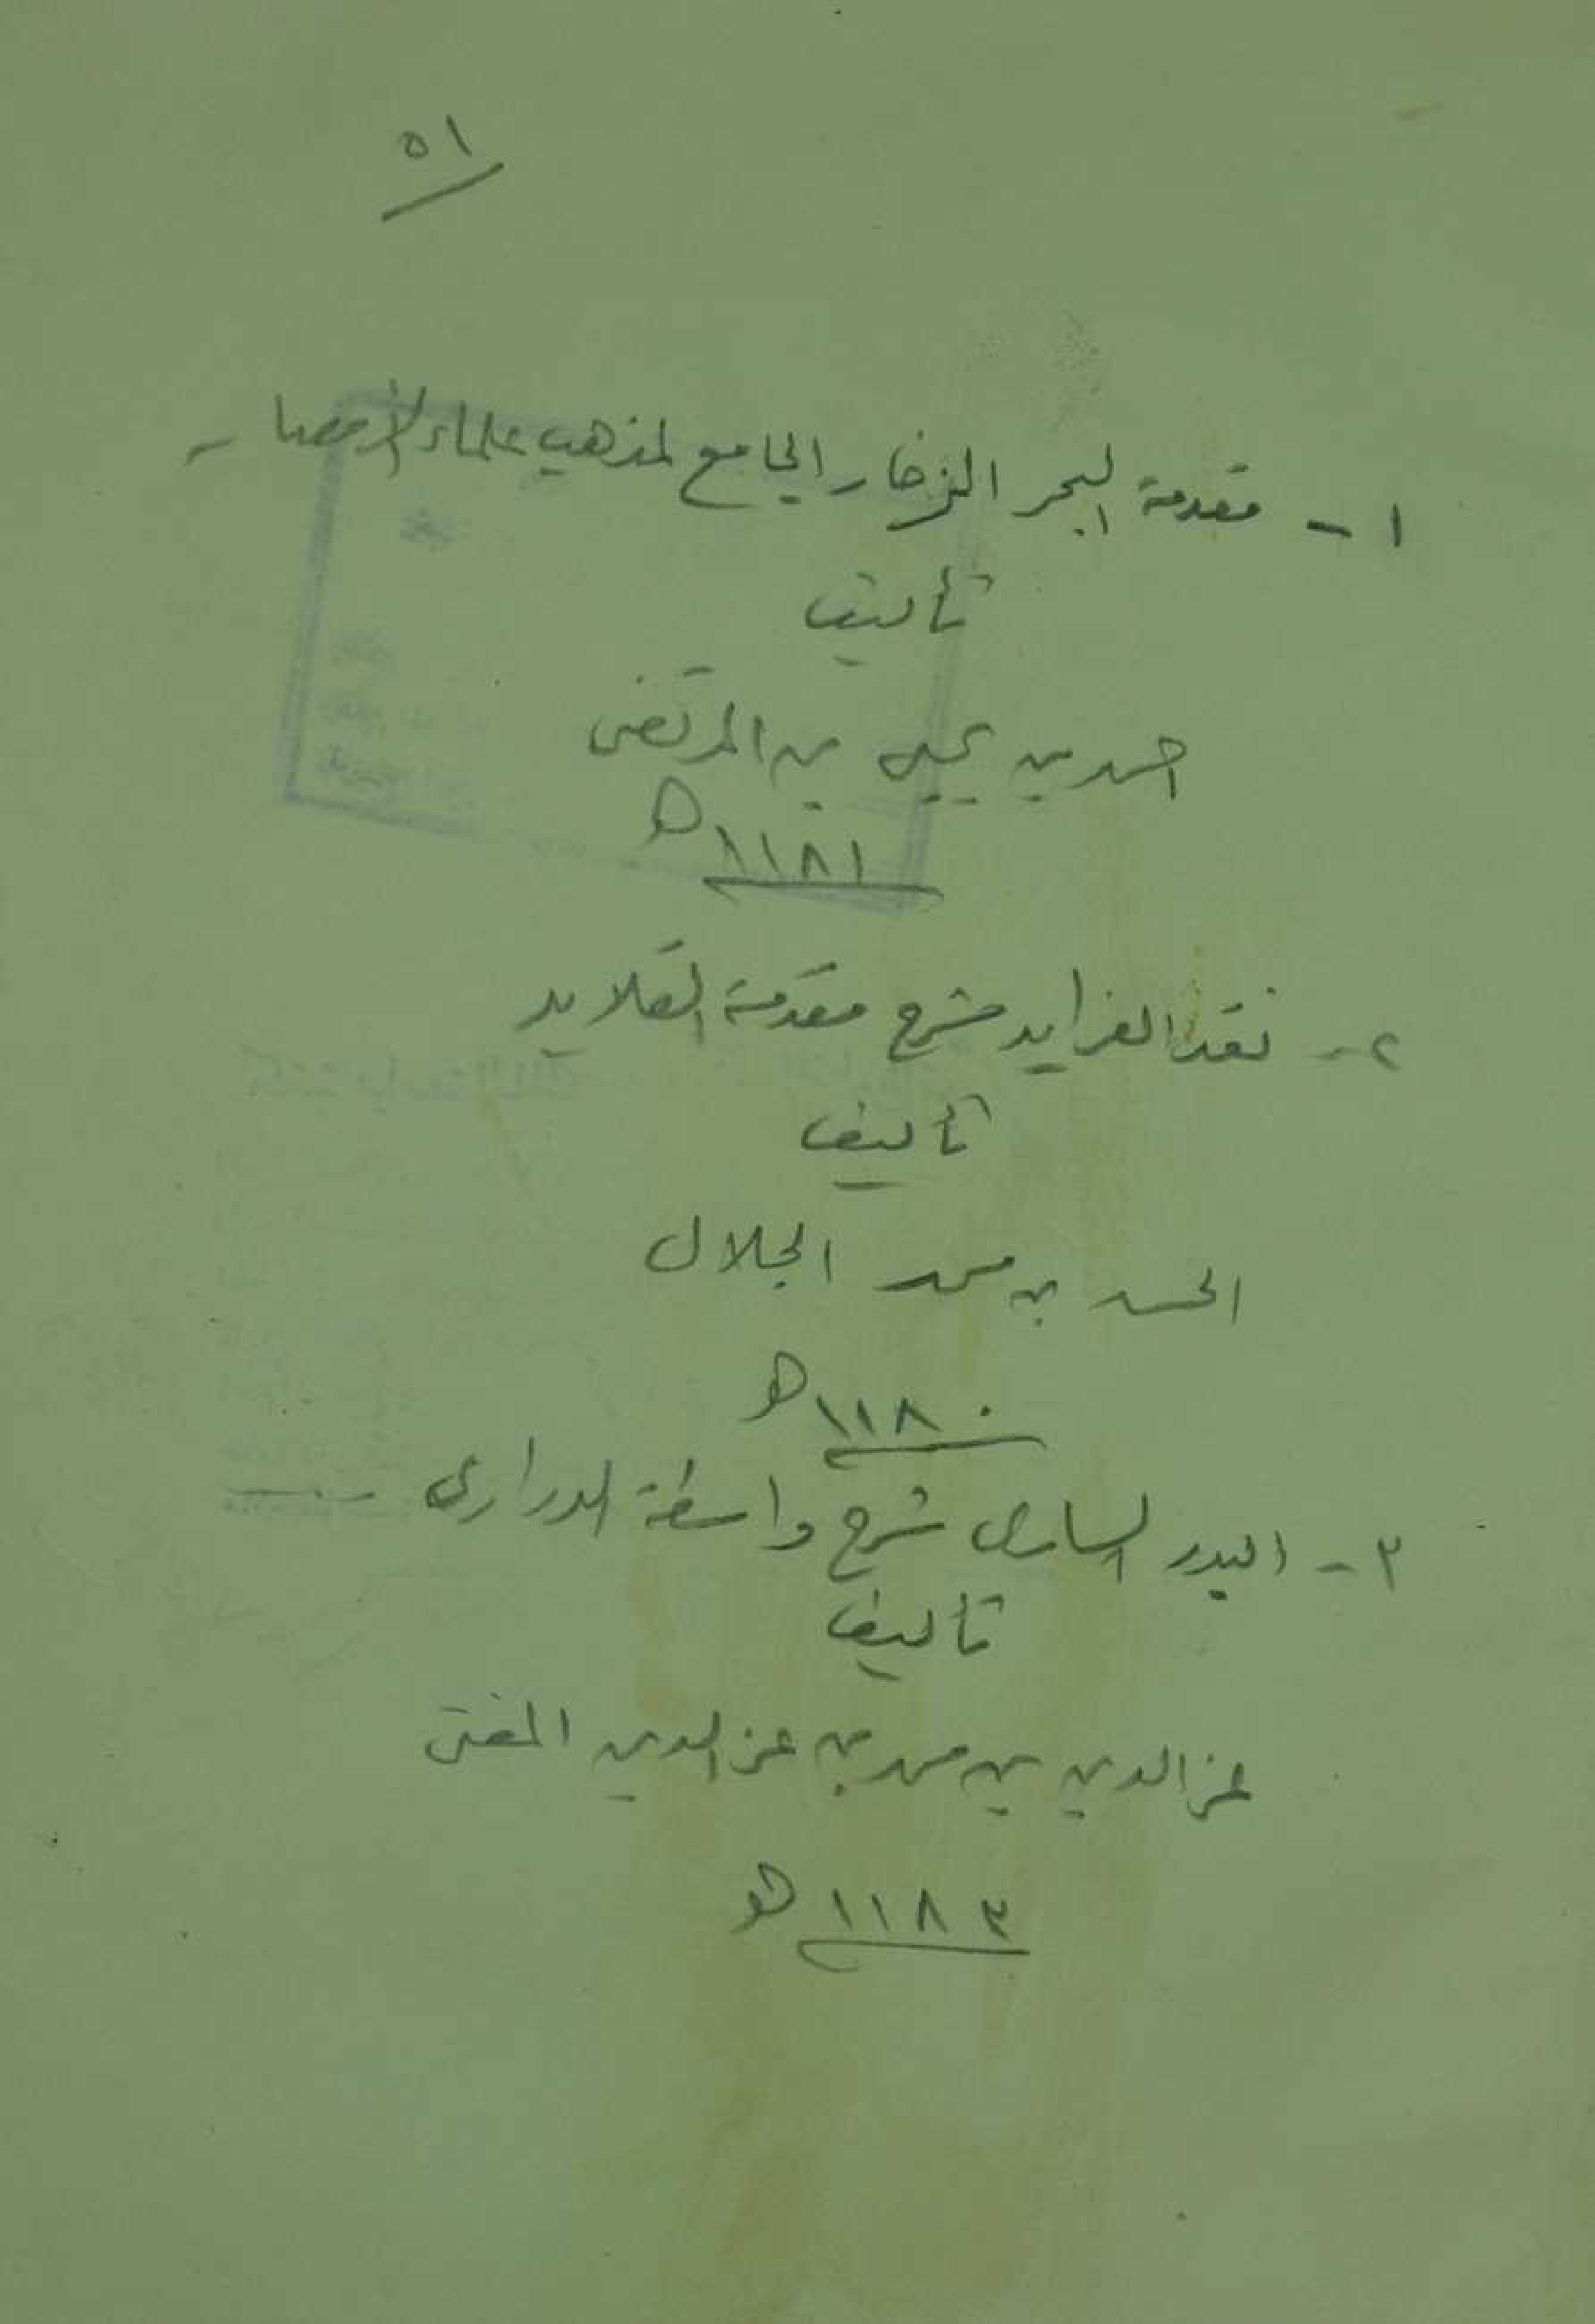 ٥١
١ - مقدمة البحر الزخار الجامع لمذهب علماء الأمصار
تأليف
احمد بن يحيى بن المرتضى
١١٨١ هـ
٢ - نقد الفرايد شرح مقدمة القلايد
تأليف
الحسن بن محمد الجلال
١١٨٠ هـ
٣ - البدر السارى شرح واسطة الدرارى
تأليف
عز الدين بن محمد بن عز الدين المفتى
١١٨٣ هـ